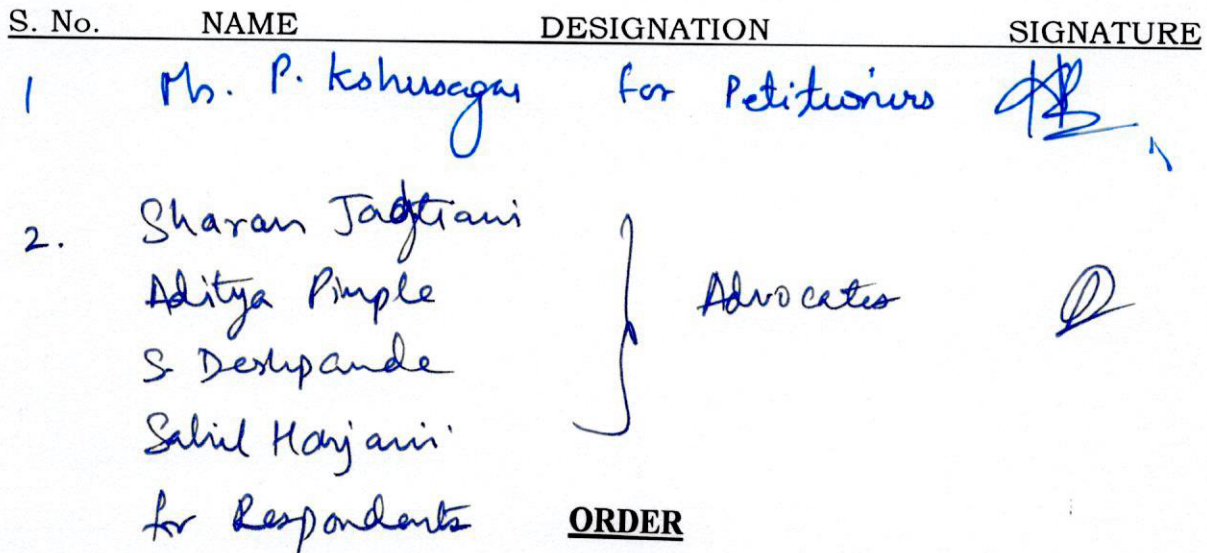 S. No. NAME DESIGNATION SIGNATURE
1 Ms. P. Kshirsagar for Petitioners
2. Sharan Jagtiani
Aditya Pimple Advocates
S. Deshpande
Sahil Harjani
for Respondents
ORDER